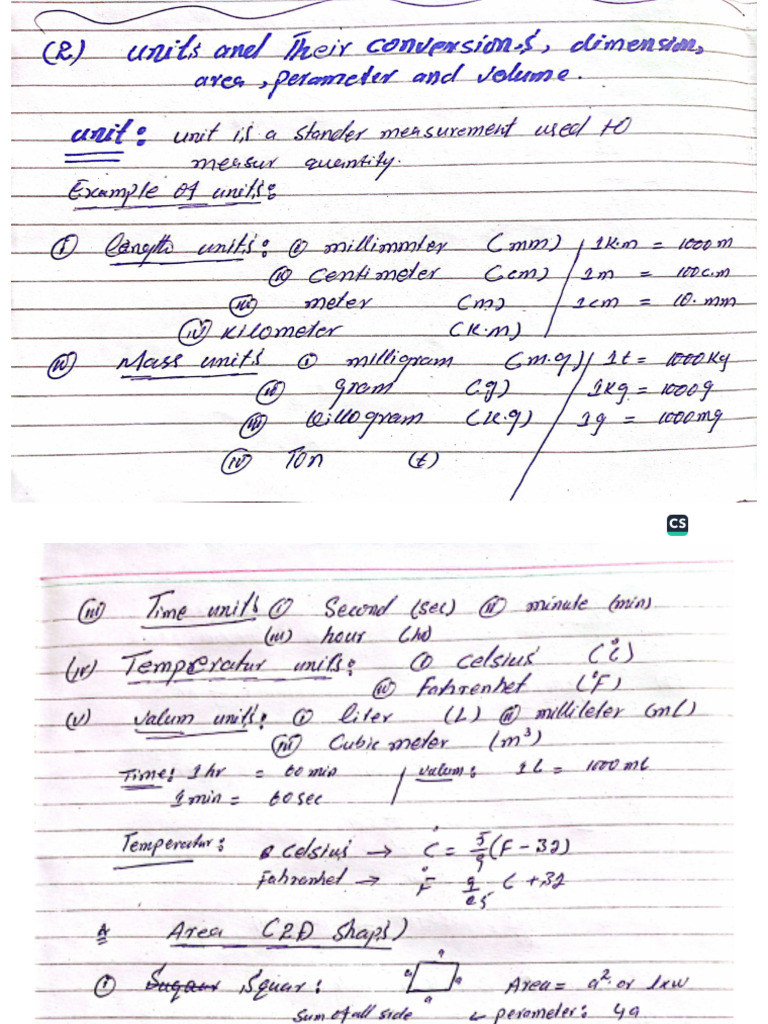 (2) units and Their conversions, dimension,
area, perameter and volume.
unit: unit is a stander measurement used to
measur quantity.
Example of units:
(i) Length units: (i) millimmter (mm) / 1K.m = 1000m
(ii) Centimeter (cm) / 1m = 100c.m
(iii) meter (m) / 1cm = 10.mm
(iv) Kilometer (K.m)
(ii) Mass units (i) milligram (m.g) / 1t = 1000Kg
(ii) gram (g) / 1Kg = 1000g
(iii) killogram (k.g) / 1g = 1000mg
(iv) Ton (t)
CS
(iii) Time units (i) Second (sec) (ii) minute (min)
(iii) hour (hr)
(iv) Temperatur units: (i) Celsius (°C)
(ii) Fahrenhet (°F)
(v) Valum units: (i) liter (L) (ii) millileter (mL)
(iii) Cubic meter (m³)
Time: 1hr = 60 min / valum: 1L = 1000 mL
1min = 60sec
Temperatur: Celsius → °C = 5/9 (F - 32)
Fahrenhet → °F 9/5 C + 32
Area (2D shaps)
(i) Squar: a a a a Area = a² or lxw
Sum of all side ← perameter: 4a